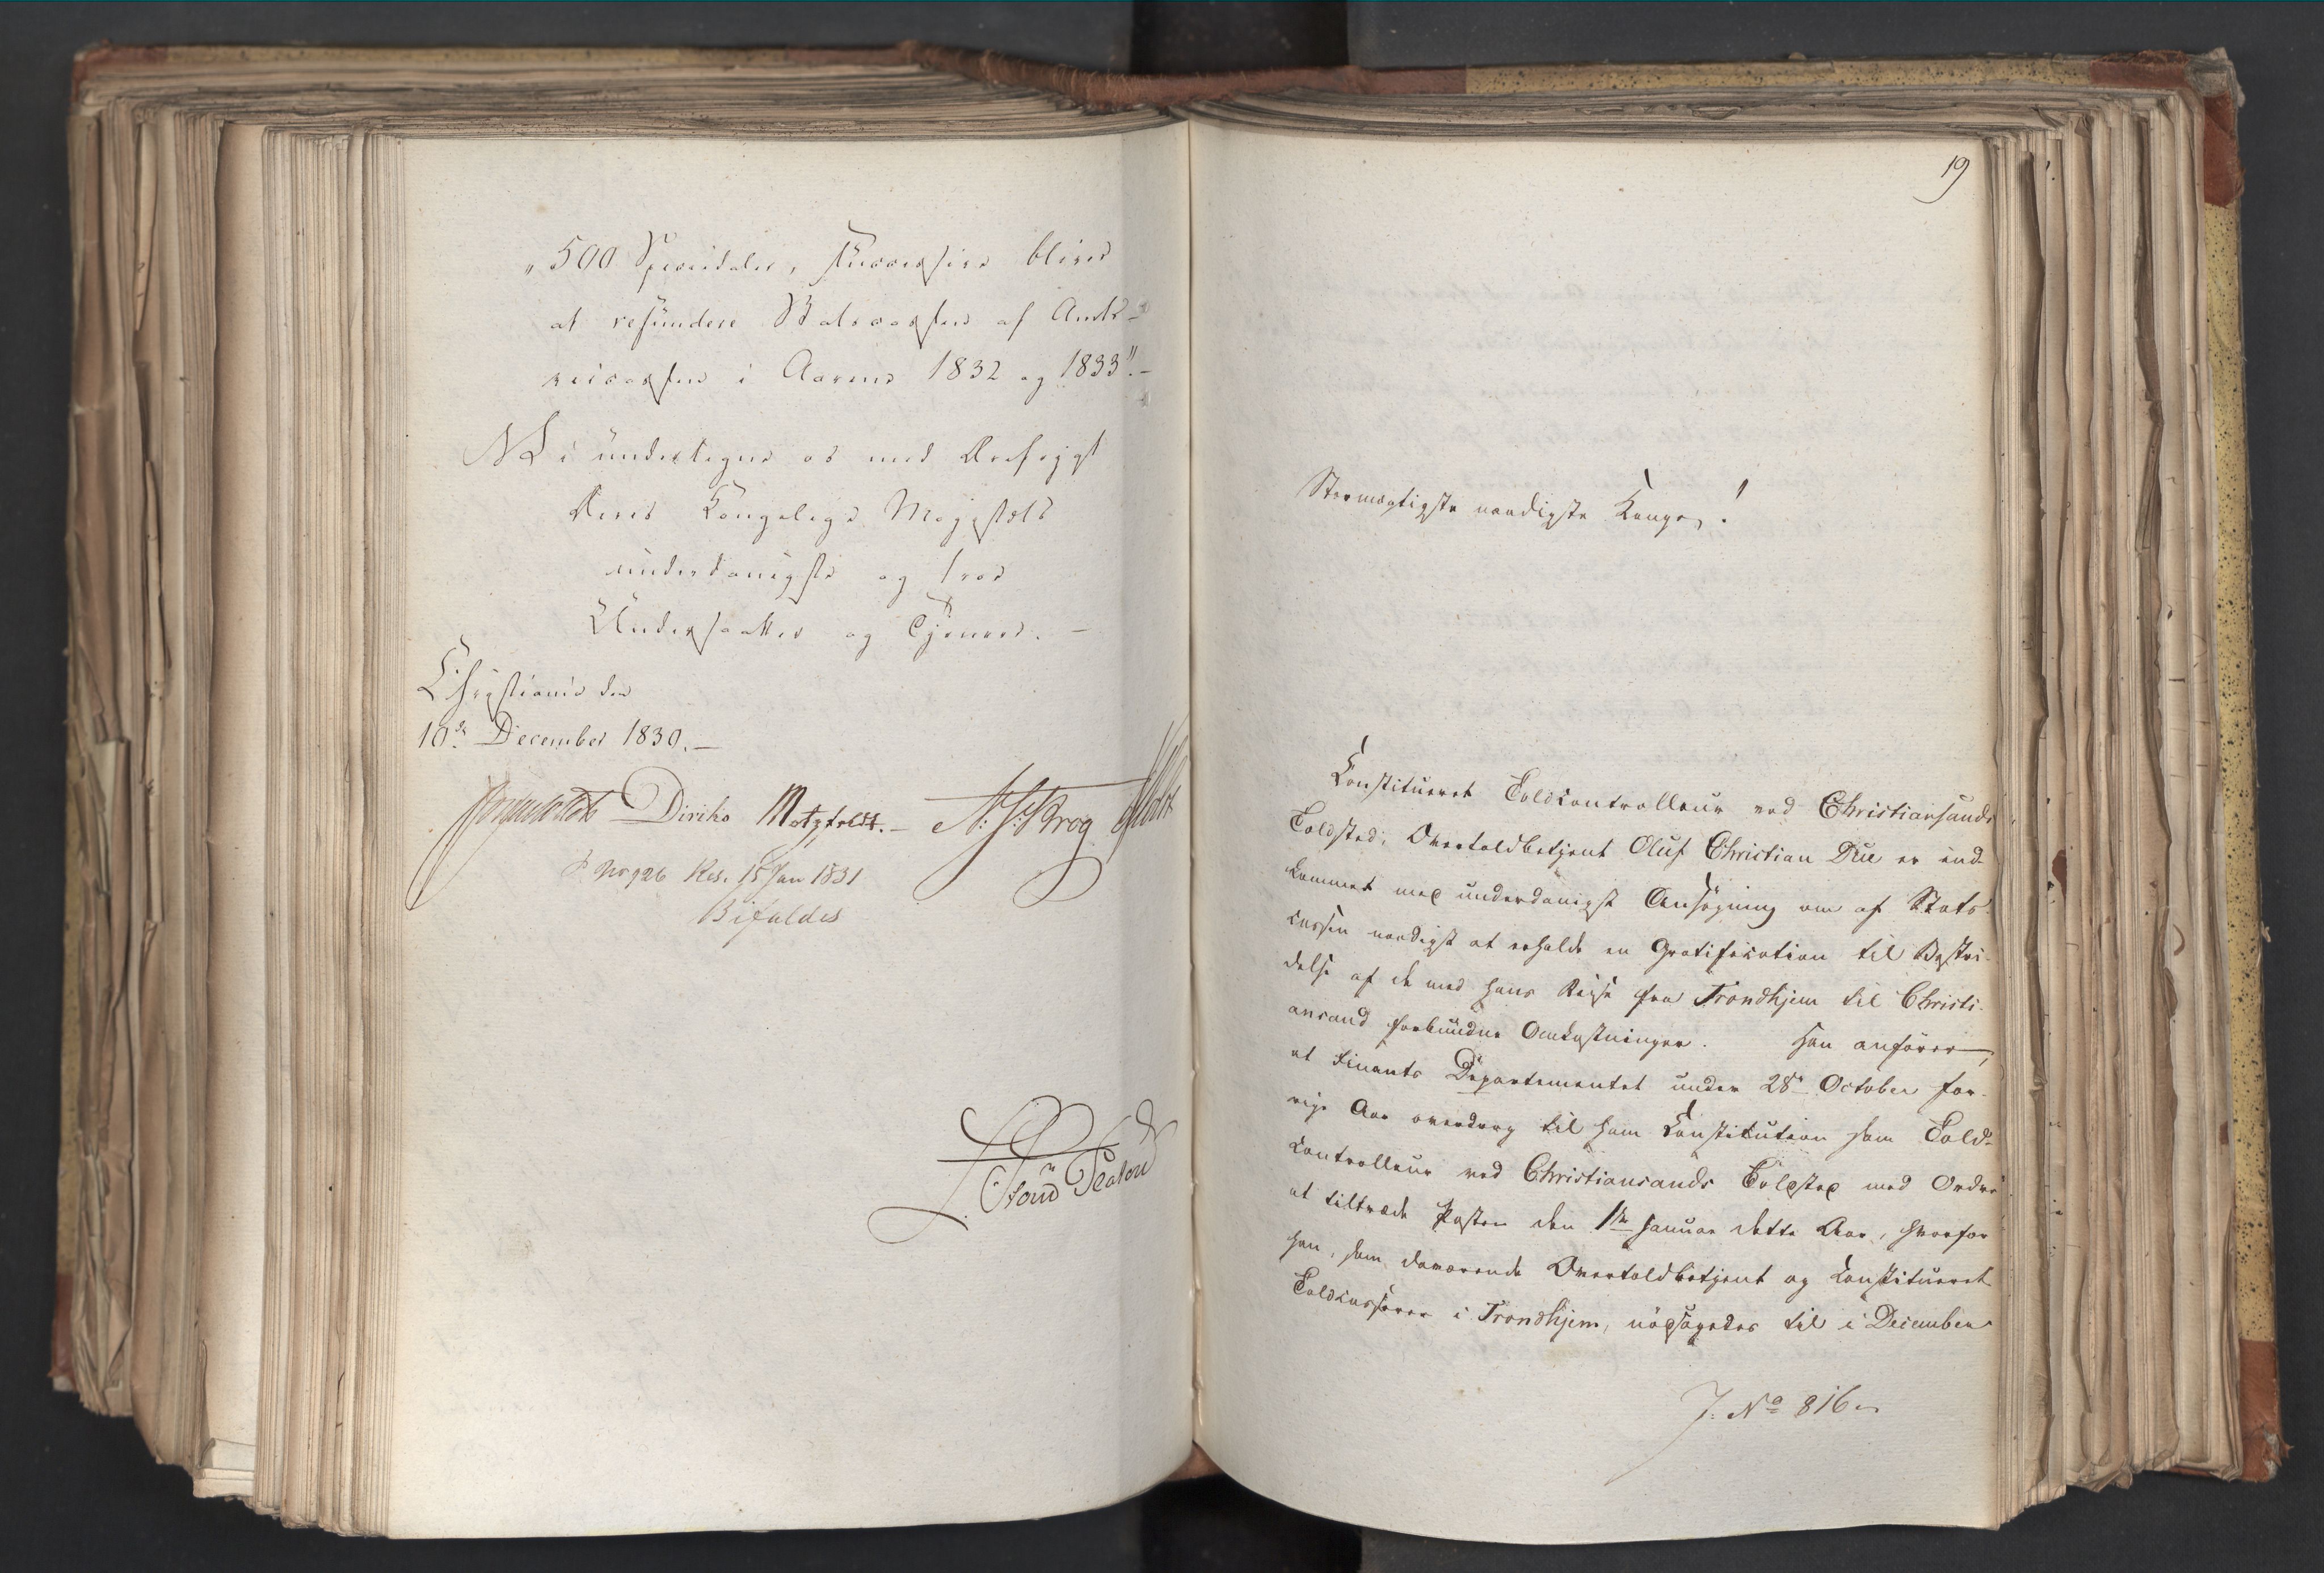 "500 Speciedaler, successive bliver
at refundere Statscassen af Amts-
reicassen i Aarene 1832 og 1833". -
Vi undertegne os med Ærefrygt
Deres Kongelige Majestæts
underdanigste og troe
Undersaatter og Tjenere. -
Christiania den
10de December 1830. -
Diriks Motzfeldt. - N: J: Krog Holst
No 926 Res. 15 Jan 1831
Bifaldes
19
Stormægtigste naadigste Konge!
Constitueret Toldcontrolleur ved Christiansands
Toldsted, Overtoldbetjent Oluf Christian Due er ind-
kommet med underdanigst Ansøgning om af Stats-
cassen naadigst at erholde en Gratification til Bestri-
delse af de med hans Reise fra Trondhjem til Christi-
ansand forbundne Omkostninger. Han anfører,
at Finants Departementet under 28de October for-
rige Aar overdrog til ham Constitution som Told-
controlleur ved Christiansands Toldsted med Ordre
at tiltræde Posten den 1ste Januar dette Aar, hvorfor
han, som daværende Overtoldbetjent og constitueret
Toldcasserer i Trondhjem, nødsagedes til i December
J: No 816